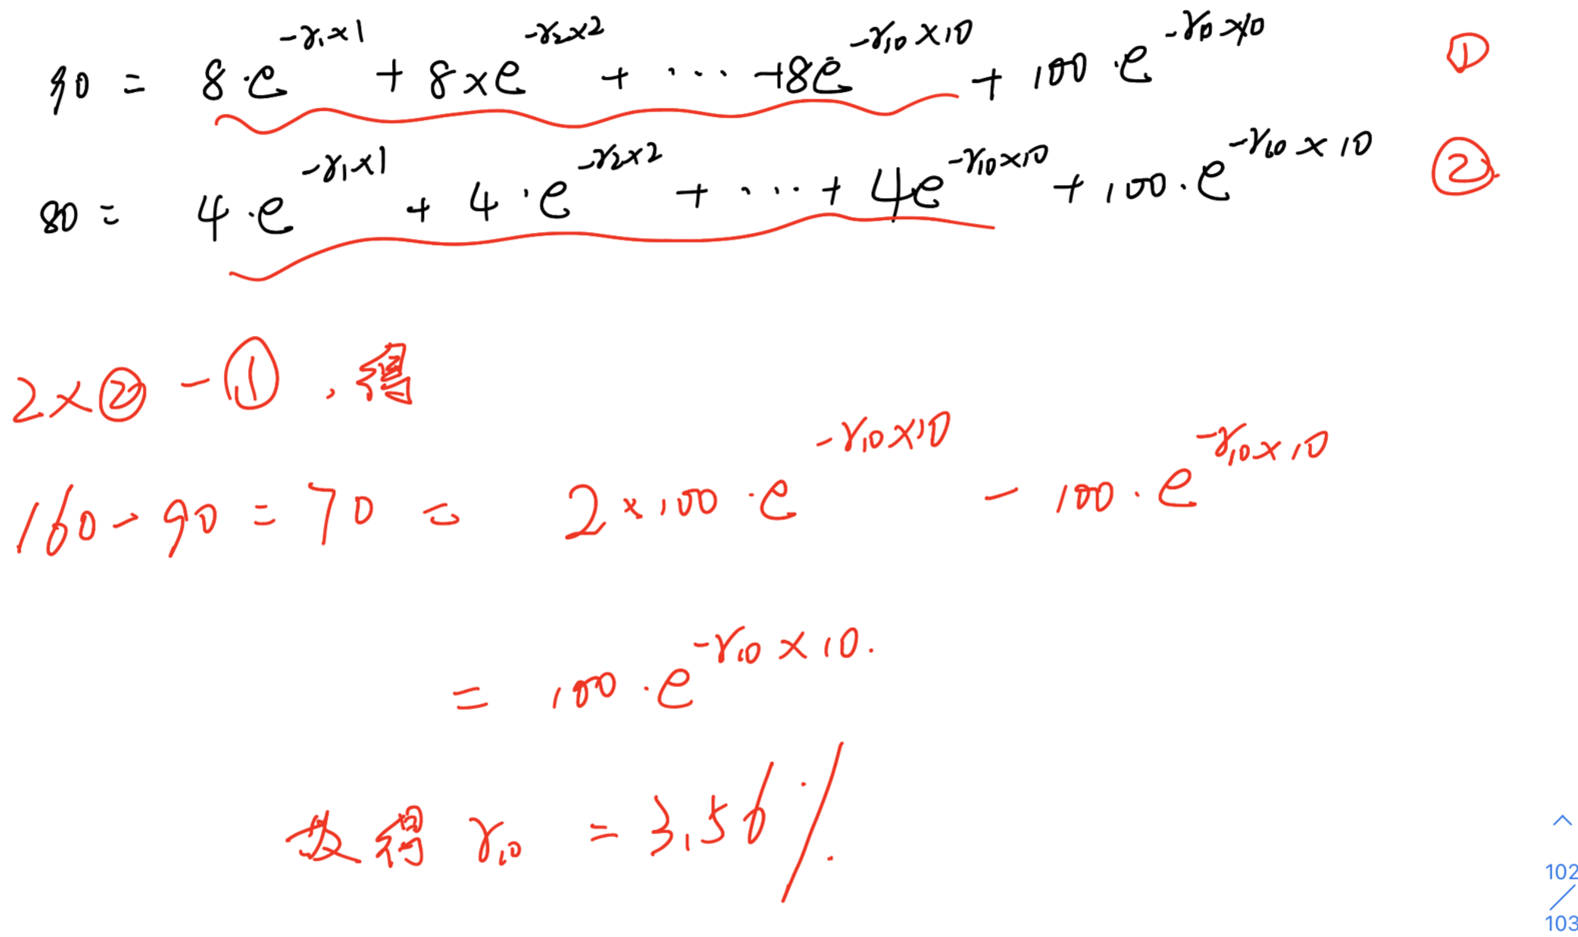 90 = 8·e^{-r₁×1} + 8×e^{-r₂×2} + ··· +8e^{-r₁₀×10} + 100·e^{-r₁₀×10} ①
80 = 4·e^{-r₁×1} + 4·e^{-r₂×2} + ··· + 4e^{-r₁₀×10} + 100·e^{-r₁₀×10} ②
2×② - ①, 得
160-90 = 70 = 2×100·e^{-r₁₀×10} - 100·e^{-r₁₀×10}
= 100·e^{-r₁₀×10}.
获得 r₁₀ = 3.56%
102
/
103